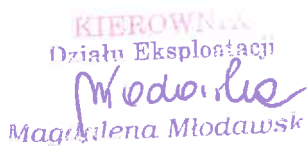 KIEROWNIK
Działu Eksploatacji
Magdalena Młodawsk